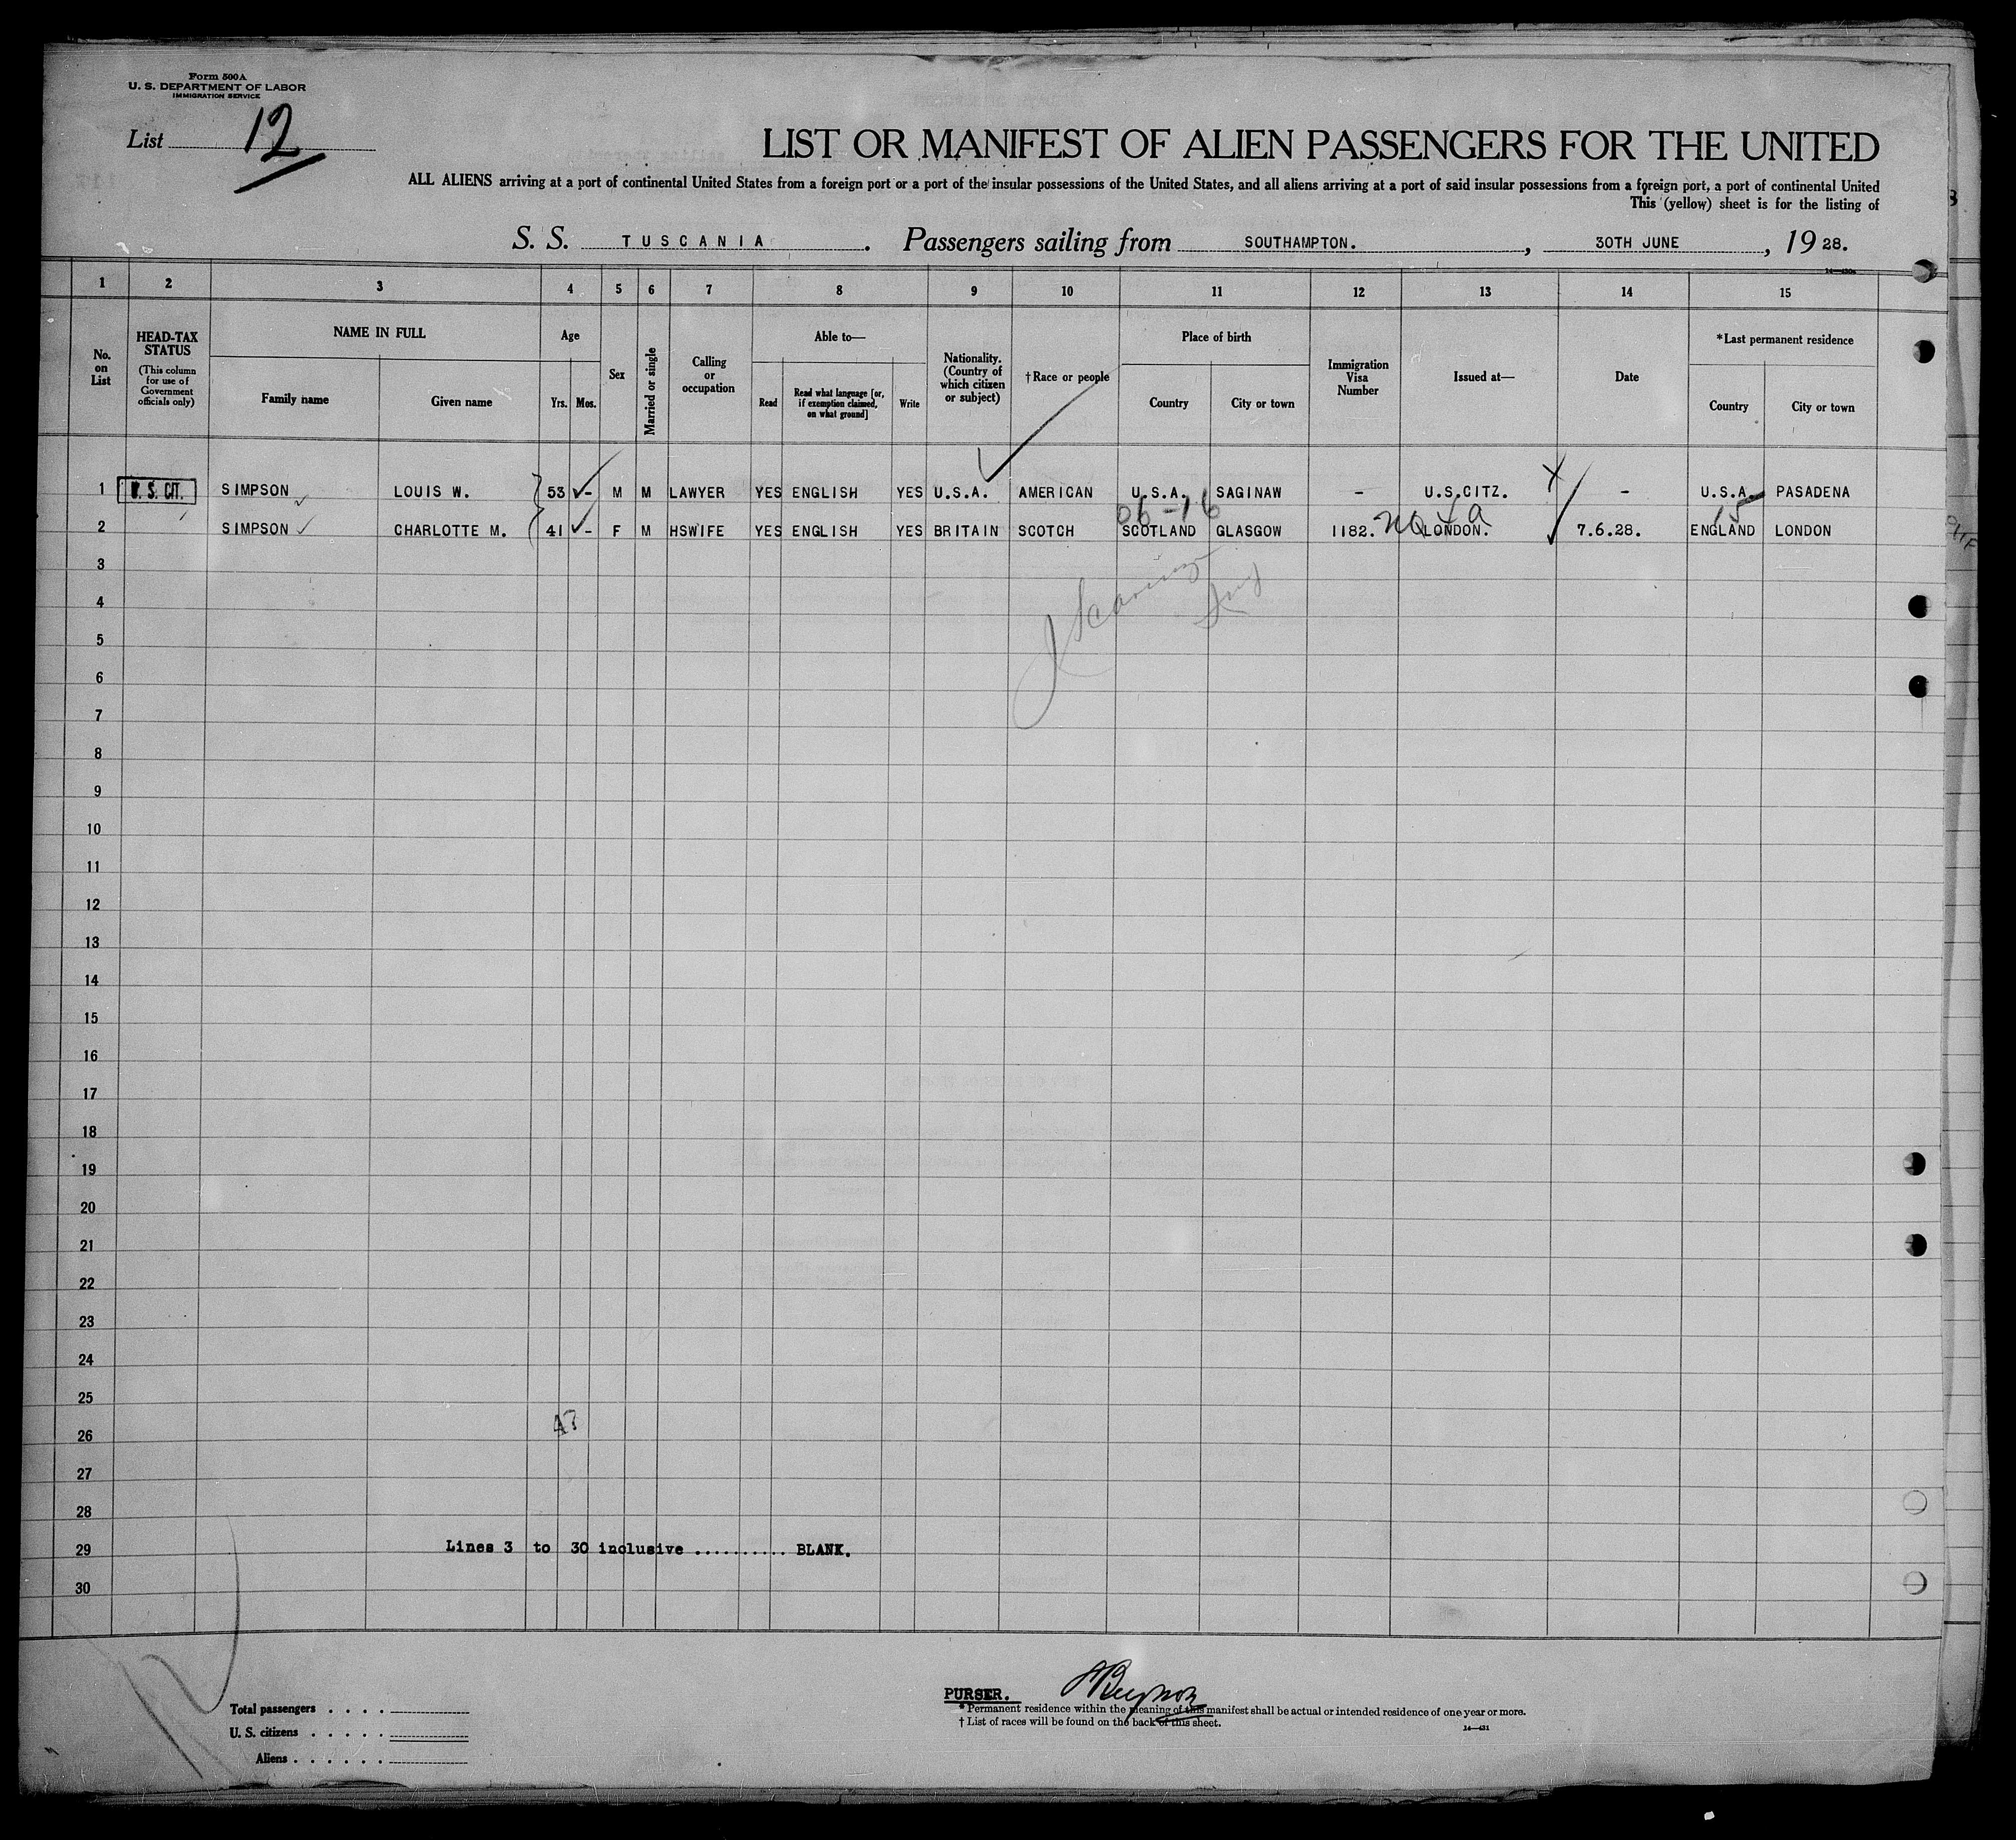 Form 500A
U. S. DEPARTMENT OF LABOR
IMMIGRATION SERVICE
List 12
LIST OR MANIFEST OF ALIEN PASSENGERS FOR THE UNITED
ALL ALIENS arriving at a port of continental United States from a foreign port or a port of the insular possessions of the United States, and all aliens arriving at a port of said insular possessions from a foreign port, a port of continental United
This (yellow) sheet is for the listing of
S. S. TUSCANIA. Passengers sailing from SOUTHAMPTON., 30TH JUNE, 1928.
1 2 3 4 5 6 7 8 9 10 11 12 13 14 15
No. on List
HEAD-TAX STATUS
(This column for use of Government officials only)
NAME IN FULL
Family name
Given name
Age
Yrs. Mos.
Sex
Married or single
Calling or occupation
Able to—
Read
Read what language [or, if exemption claimed, on what ground]
Write
Nationality. (Country of which citizen or subject)
†Race or people
Place of birth
Country
City or town
Immigration Visa Number
Issued at—
Date
*Last permanent residence
Country
City or town
1 U. S. CIT. SIMPSON LOUIS W. 53 - M M LAWYER YES ENGLISH YES U.S.A. AMERICAN U.S.A. SAGINAW - U.S.CITZ. - U.S.A. PASADENA
06-16
15
2 SIMPSON CHARLOTTE M. 41 - F M HSWIFE YES ENGLISH YES BRITAIN SCOTCH SCOTLAND GLASGOW 1182. LONDON. 7.6.28. ENGLAND LONDON
3
4
5
6
7
8
9
10
11
12
13
14
15
16
17
18
19
20
21
22
23
24
25
47
26
27
28
29 Lines 3 to 30 inclusive .......... BLANK.
30
Total passengers . . . .
U. S. citizens . . . . .
Aliens . . . . . .
PURSER.
*Permanent residence within the meaning of this manifest shall be actual or intended residence of one year or more.
†List of races will be found on the back of this sheet.
14—431